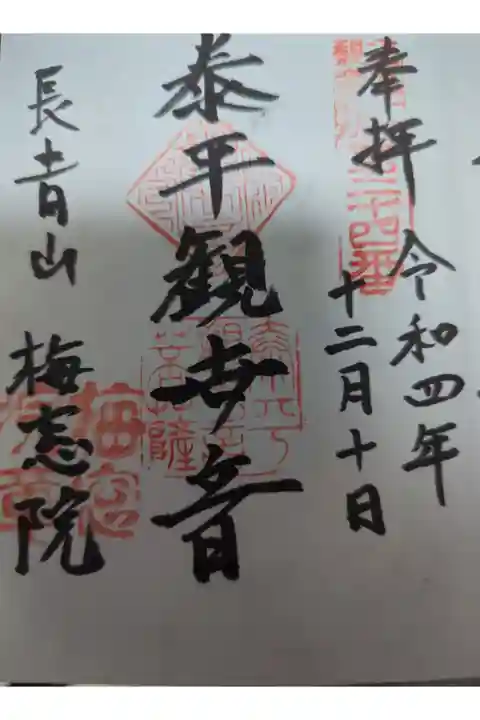 奉拝
令和四年
十二月十日
泰平観世音
長青山 梅窓院